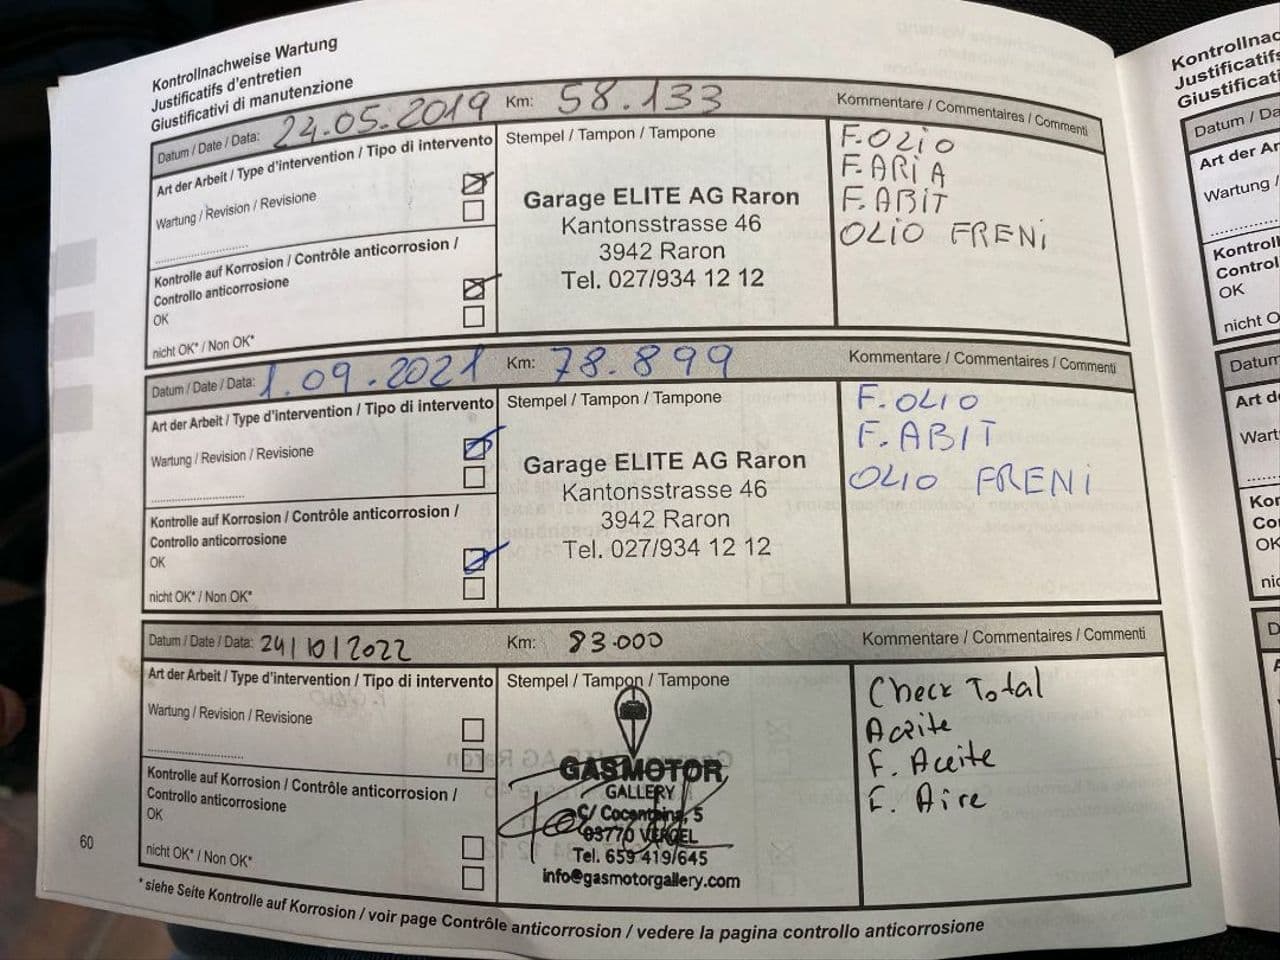 Kontrollnachweise Wartung
Justificatifs d'entretien
Giustificativi di manutenzione
Datum / Date / Data: 24.05.2019 Km: 58.133 Kommentare / Commentaires / Commenti
Art der Arbeit / Type d'intervention / Tipo di intervento
Wartung / Revision / Revisione
Kontrolle auf Korrosion / Contrôle anticorrosion /
Controllo anticorrosione
OK
nicht OK* / Non OK*
Stempel / Tampon / Tampone
Garage ELITE AG Raron
Kantonsstrasse 46
3942 Raron
Tel. 027/934 12 12
F.OLIO
F.ARIA
F.ABIT
OLIO FRENi
Datum / Date / Data: 1.09.2021 Km: 78.899 Kommentare / Commentaires / Commenti
Art der Arbeit / Type d'intervention / Tipo di intervento
Wartung / Revision / Revisione
Kontrolle auf Korrosion / Contrôle anticorrosion /
Controllo anticorrosione
OK
nicht OK* / Non OK*
Stempel / Tampon / Tampone
Garage ELITE AG Raron
Kantonsstrasse 46
3942 Raron
Tel. 027/934 12 12
F.OLIO
F.ABIT
OLIO FRENi
Datum / Date / Data: 24/10/2022 Km: 83.000 Kommentare / Commentaires / Commenti
Art der Arbeit / Type d'intervention / Tipo di intervento
Wartung / Revision / Revisione
Kontrolle auf Korrosion / Contrôle anticorrosion /
Controllo anticorrosione
OK
nicht OK* / Non OK*
Stempel / Tampon / Tampone
GASMOTOR
GALLERY
C/ Cocentaina, 5
03770 VERGEL
Tel. 659 419/645
info@gasmotorgallery.com
Check Total
Aceite
F. Aceite
F. Aire
60
* siehe Seite Kontrolle auf Korrosion / voir page Contrôle anticorrosion / vedere la pagina controllo anticorrosione
Justificatifs
Datum / Da
Art der Ar
Wartung /
OK
nicht O
Datum
Art d
Wart
OK